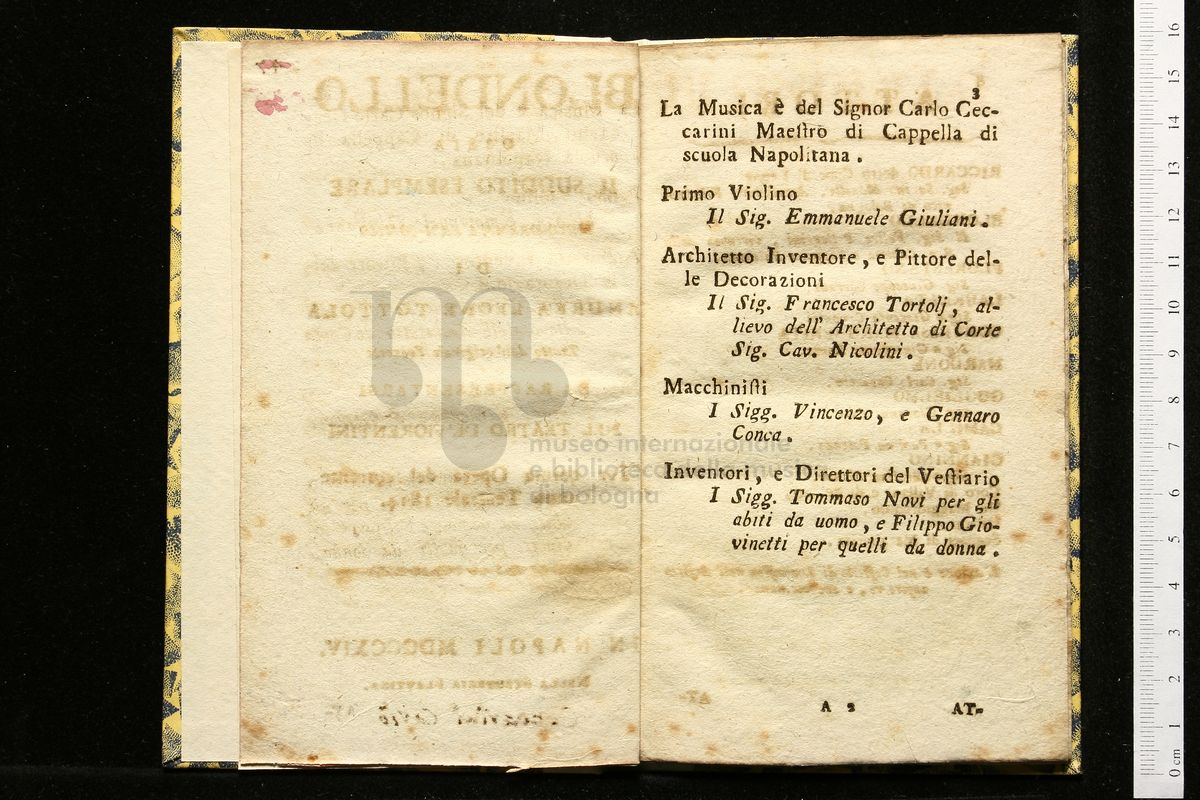 3
La Musica è del Signor Carlo Cec-
carini Maeſtro di Cappella di
scuola Napolitana .
Primo Violino
Il Sig. Emmanuele Giuliani .
Architetto Inventore , e Pittore del-
le Decorazioni
Il Sig. Francesco Tortolj , al-
lievo dell' Architetto di Corte
Sig. Cav. Nicolini .
Macchiniſti
I Sigg. Vincenzo , e Gennaro
Conca .
Inventori , e Direttori del Veſtiario
I Sigg. Tommaso Novi per gli
abiti da uomo , e Filippo Gio-
vinetti per quelli da donna .
A 2 AT-
museo internazionale
e biblioteca della musica
di bologna
BLONDELLO
IL SUDDITO ESEMPLARE
DI
ANDREA LEONE TOTTOLA
IN NAPOLI MDCCCXIV.
0 cm 1 2 3 4 5 6 7 8 9 10 11 12 13 14 15 16